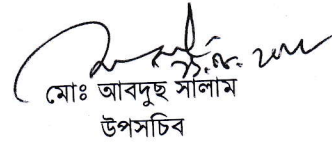 মোঃ আবদুছ সালাম
উপসচিব